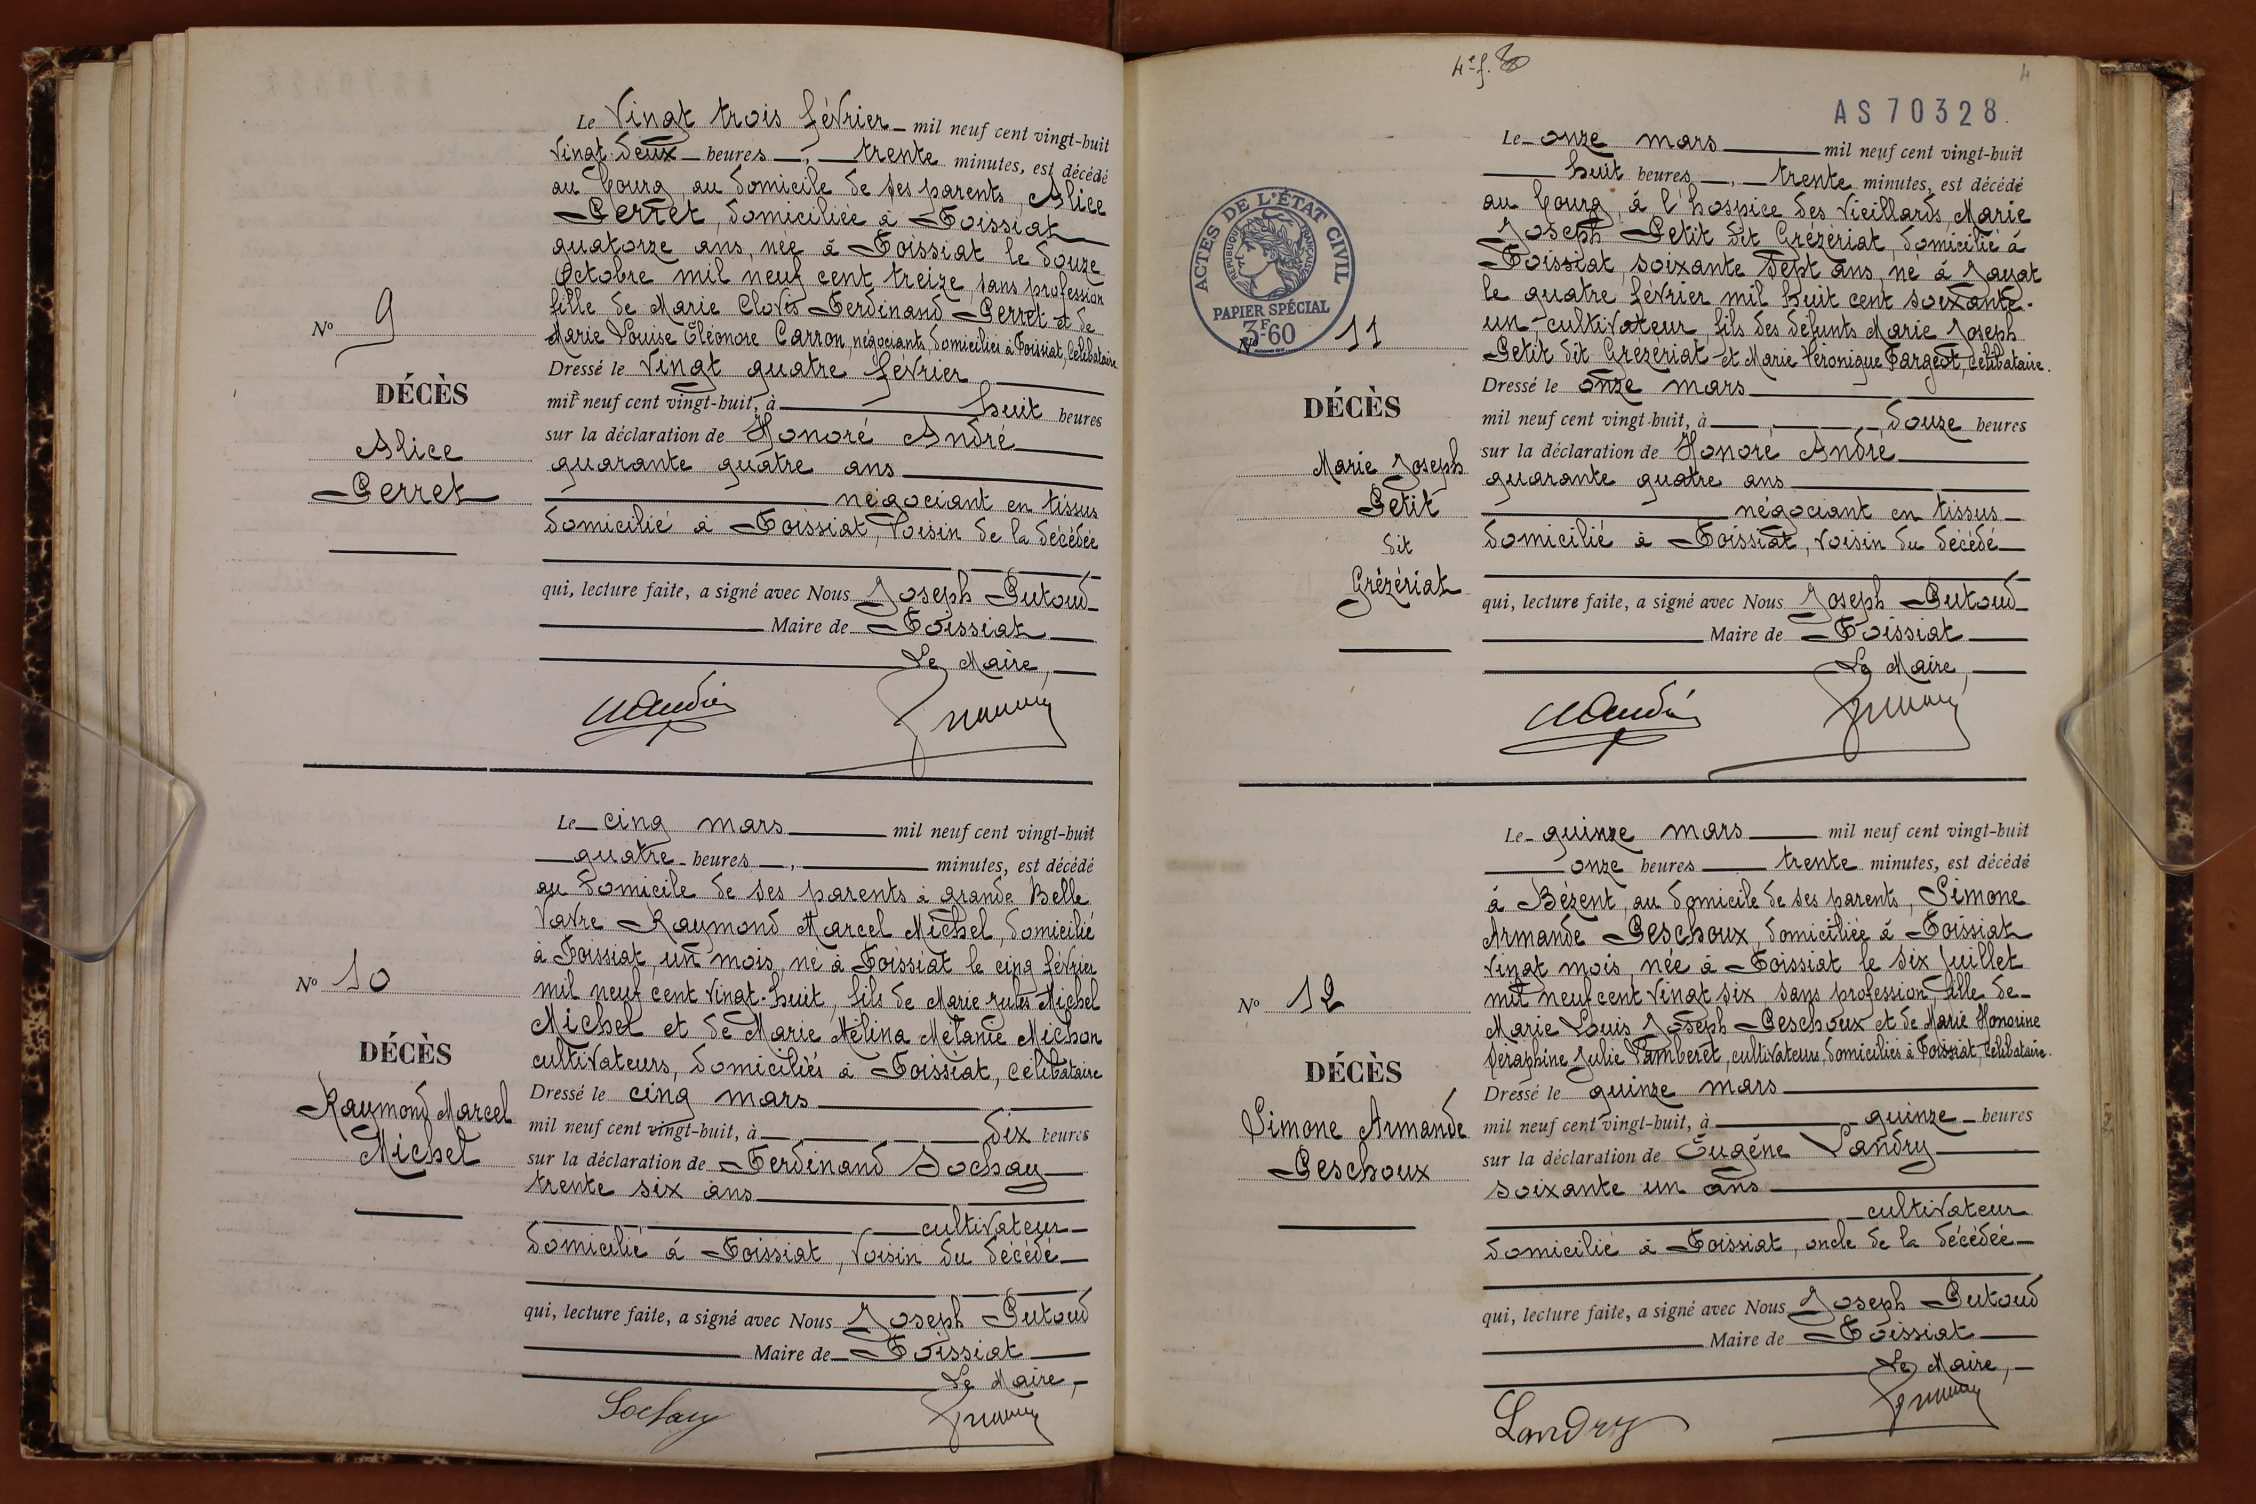 Le Vingt trois février mil neuf cent vingt-huit
Vingt-deux heures, trente minutes, est décédé
au bourg, au domicile de ses parents, Alice
Perret, domiciliée à Foissiat
quatorze ans, née à Foissiat le douze
Octobre mil neuf cent treize, sans profession
fille de Marie Clovis Ferdinand Perret et de
Marie Louise Eléonore Carron, négociants, domiciliés à Foissiat, Célibataire
Dressé le Vingt quatre février
mil neuf cent vingt-huit, à huit heures
sur la déclaration de Honoré André
quarante quatre ans
négociant en tissus
domicilié à Foissiat, Voisin de la décédée
qui, lecture faite, a signé avec Nous Joseph Putoud
Maire de Foissiat
Le Maire,
No 9
DÉCÈS
Alice
Perret
Le cinq mars mil neuf cent vingt-huit
quatre heures, minutes, est décédé
au domicile de ses parents à grande Belle
Vavre Raymond Marcel Michel, domicilié
à Foissiat, un mois, né à Foissiat le cinq février
mil neuf cent vingt-huit, fils de Marie Jules Michel
Michel et de Marie Mélina Mélanie Michon
cultivateurs, domiciliés à Foissiat, Célibataire
Dressé le cinq mars
mil neuf cent vingt-huit, à dix heures
sur la déclaration de Ferdinand Sochay
trente six ans
cultivateur
domicilié à Foissiat, Voisin du décédé
qui, lecture faite, a signé avec Nous Joseph Putoud
Maire de Foissiat
Le Maire,
Sochay
No 10
DÉCÈS
Raymond Marcel
Michel
4e f.
4
AS70328
ACTES DE L'ÉTAT CIVIL
RÉPUBLIQUE FRANÇAISE
PAPIER SPÉCIAL
3F60
Le onze mars mil neuf cent vingt-huit
huit heures, trente minutes, est décédé
au bourg, à l'hospice des Vieillards, Marie
Joseph Petit dit Grézériat, domicilié à
Foissiat, soixante sept ans, né à Jayat
le quatre février mil huit cent soixante-
un, cultivateur, fils des défunts Marie Joseph
Petit dit Grézériat et Marie Véronique Fargeot, Célibataire.
Dressé le onze mars
mil neuf cent vingt-huit, à douze heures
sur la déclaration de Honoré André
quarante quatre ans
négociant en tissus
domicilié à Foissiat, voisin du décédé
qui, lecture faite, a signé avec Nous Joseph Putoud
Maire de Foissiat
Le Maire,
No 11
DÉCÈS
Marie Joseph
Petit
dit
Grézériat
Le quinze mars mil neuf cent vingt-huit
onze heures trente minutes, est décédé
à Bézent, au domicile de ses parents, Simone
Armande Peschoux, domiciliée à Foissiat
vingt mois, née à Foissiat le six Juillet
mil neuf cent vingt six, sans profession, fille de
Marie Louis Joseph Peschoux et de Marie Honorine
Séraphine Julie Vamberet, cultivateurs, domiciliés à Foissiat, Célibataire.
Dressé le quinze mars
mil neuf cent vingt-huit, à quinze heures
sur la déclaration de Eugène Landry
soixante un ans
cultivateur
domicilié à Foissiat, oncle de la décédée
qui, lecture faite, a signé avec Nous Joseph Putoud
Maire de Foissiat
Le Maire,
Landry
No 12
DÉCÈS
Simone Armande
Peschoux